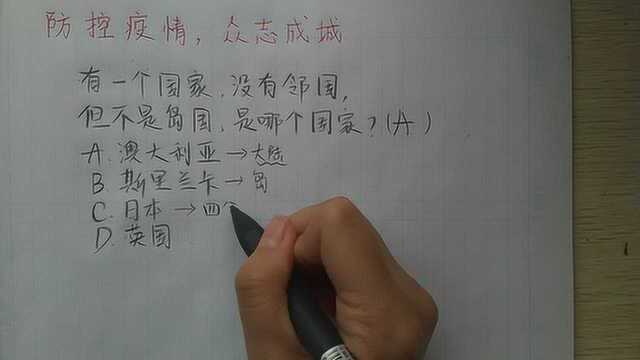 防控疫情，众志成城
有一个国家，没有邻国，
但不是岛国，是哪个国家？（A）
A.澳大利亚→大陆
B.斯里兰卡→岛
C.日本→四
D.英国